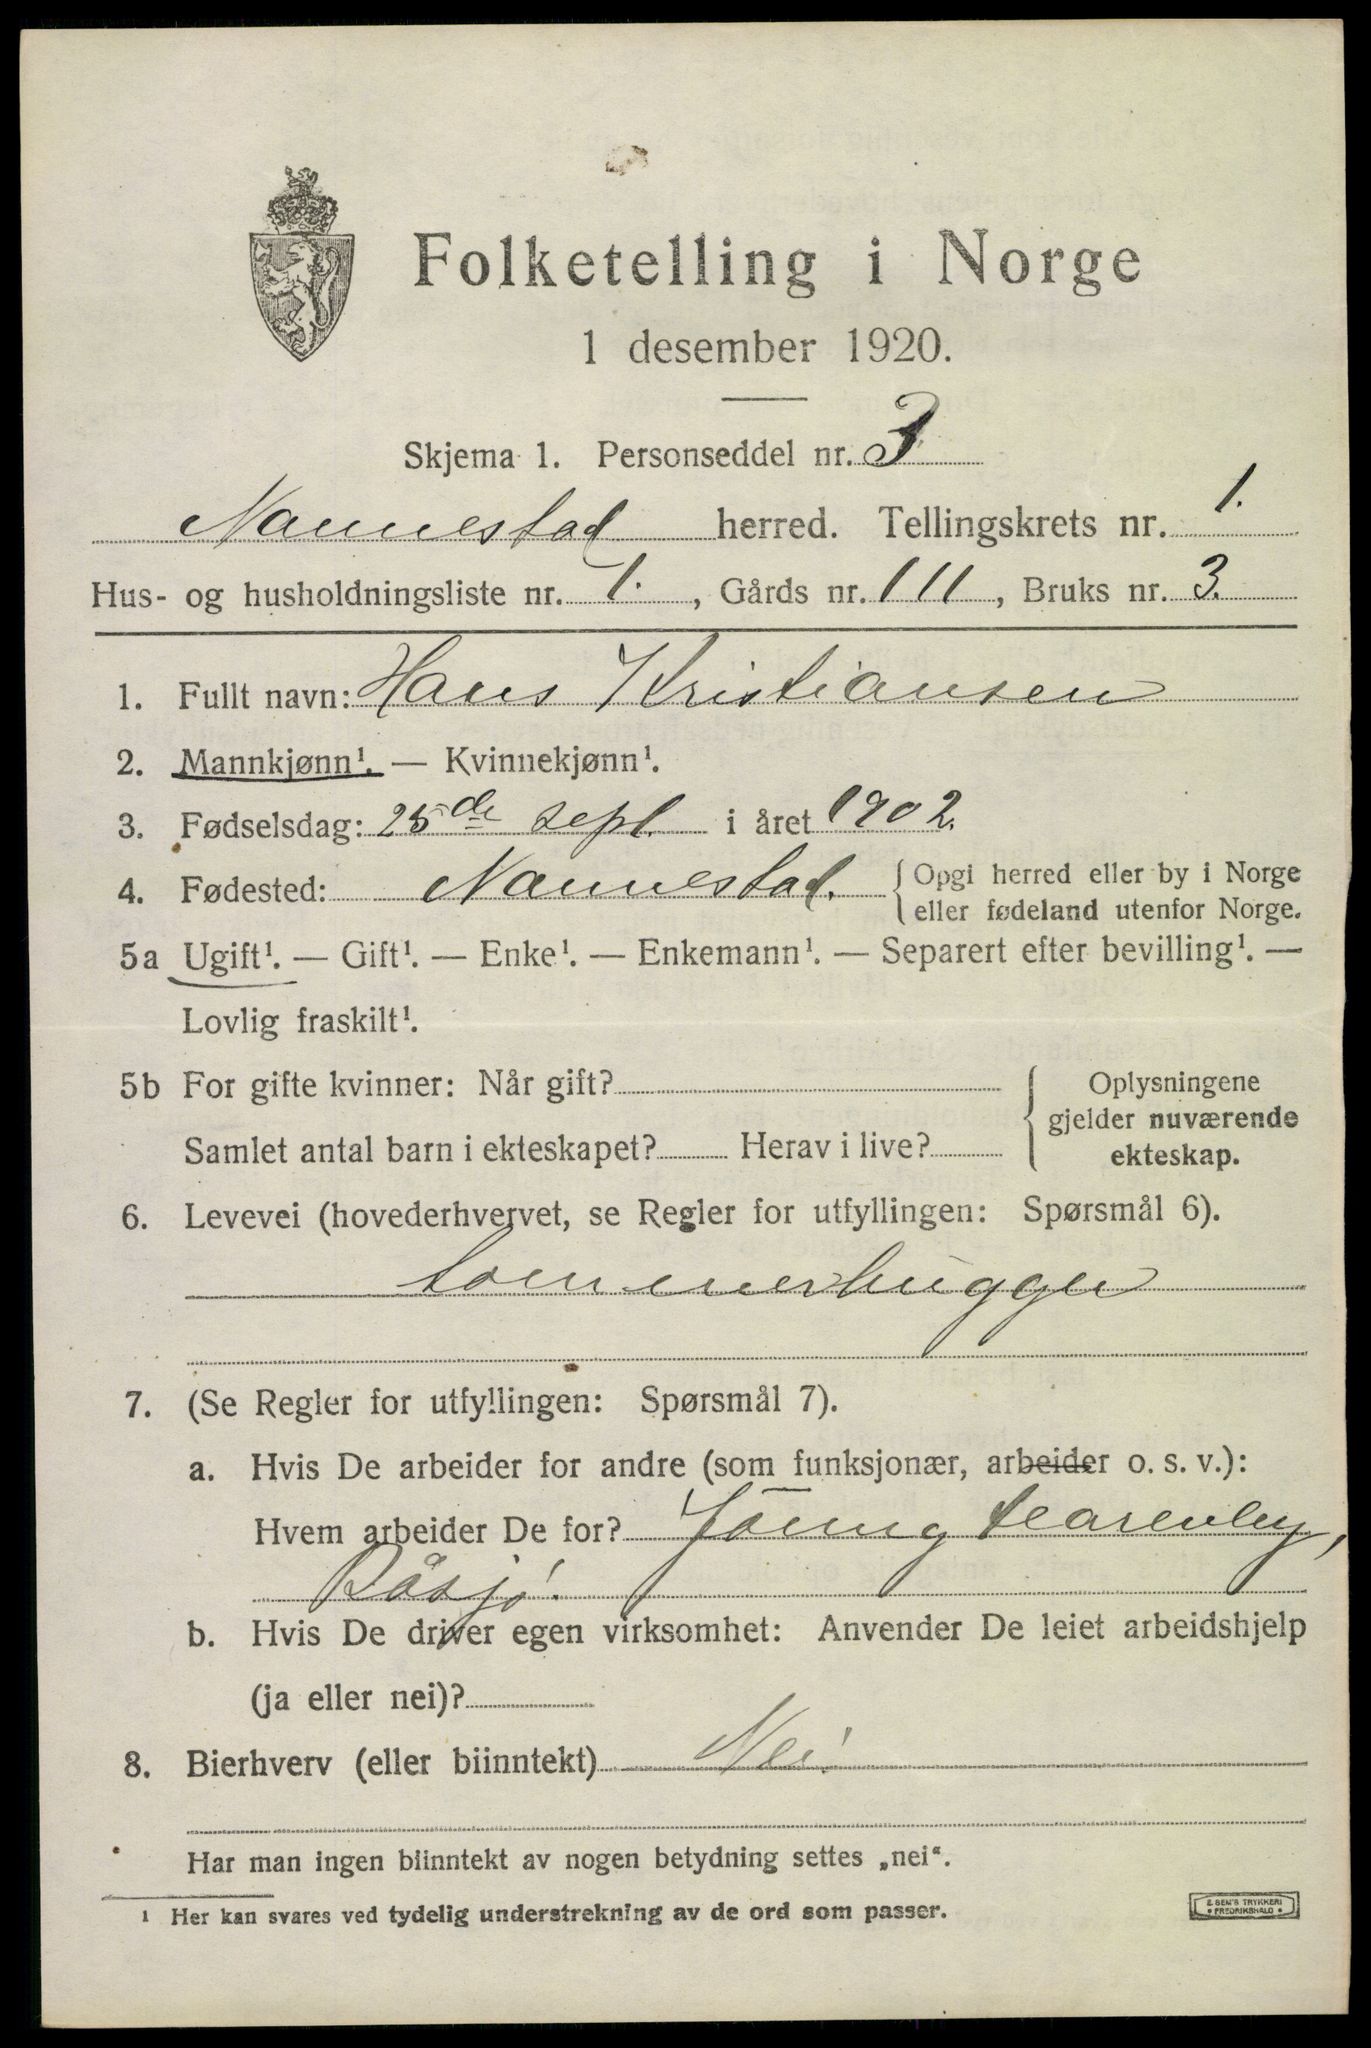 Folketelling i Norge
1 desember 1920.
Skjema 1. Personseddel nr. 3
Nannestad herred. Tellingskrets nr. 1.
Hus- og husholdningsliste nr. 1., Gårds nr. 111, Bruks nr. 3.
1. Fullt navn: Hans Kristiansen
2. Mannkjønn¹. — Kvinnekjønn¹.
3. Fødselsdag: 25de sept. i året 1902.
4. Fødested: Nannestad. { Opgi herred eller by i Norge
eller fødeland utenfor Norge.
5a Ugift¹. — Gift¹. — Enke¹. — Enkemann¹. — Separert efter bevilling¹. —
Lovlig fraskilt¹.
5b For gifte kvinner: Når gift?
Samlet antal barn i ekteskapet? Herav i live?
Oplysningene
gjelder nuværende
ekteskap.
6. Levevei (hovederhvervet, se Regler for utfyllingen: Spørsmål 6).
tømmerhugger
7. (Se Regler for utfyllingen: Spørsmål 7).
a. Hvis De arbeider for andre (som funksjonær, arbeider o. s. v.):
Hvem arbeider De for?
Råsjø.
b. Hvis De driver egen virksomhet: Anvender De leiet arbeidshjelp
(ja eller nei)?
8. Bierhverv (eller biinntekt) Nei.
Har man ingen biinntekt av nogen betydning settes „nei“.
¹ Her kan svares ved tydelig understrekning av de ord som passer.
E SEM'S TRYKKERI
FREDRIKSHALD